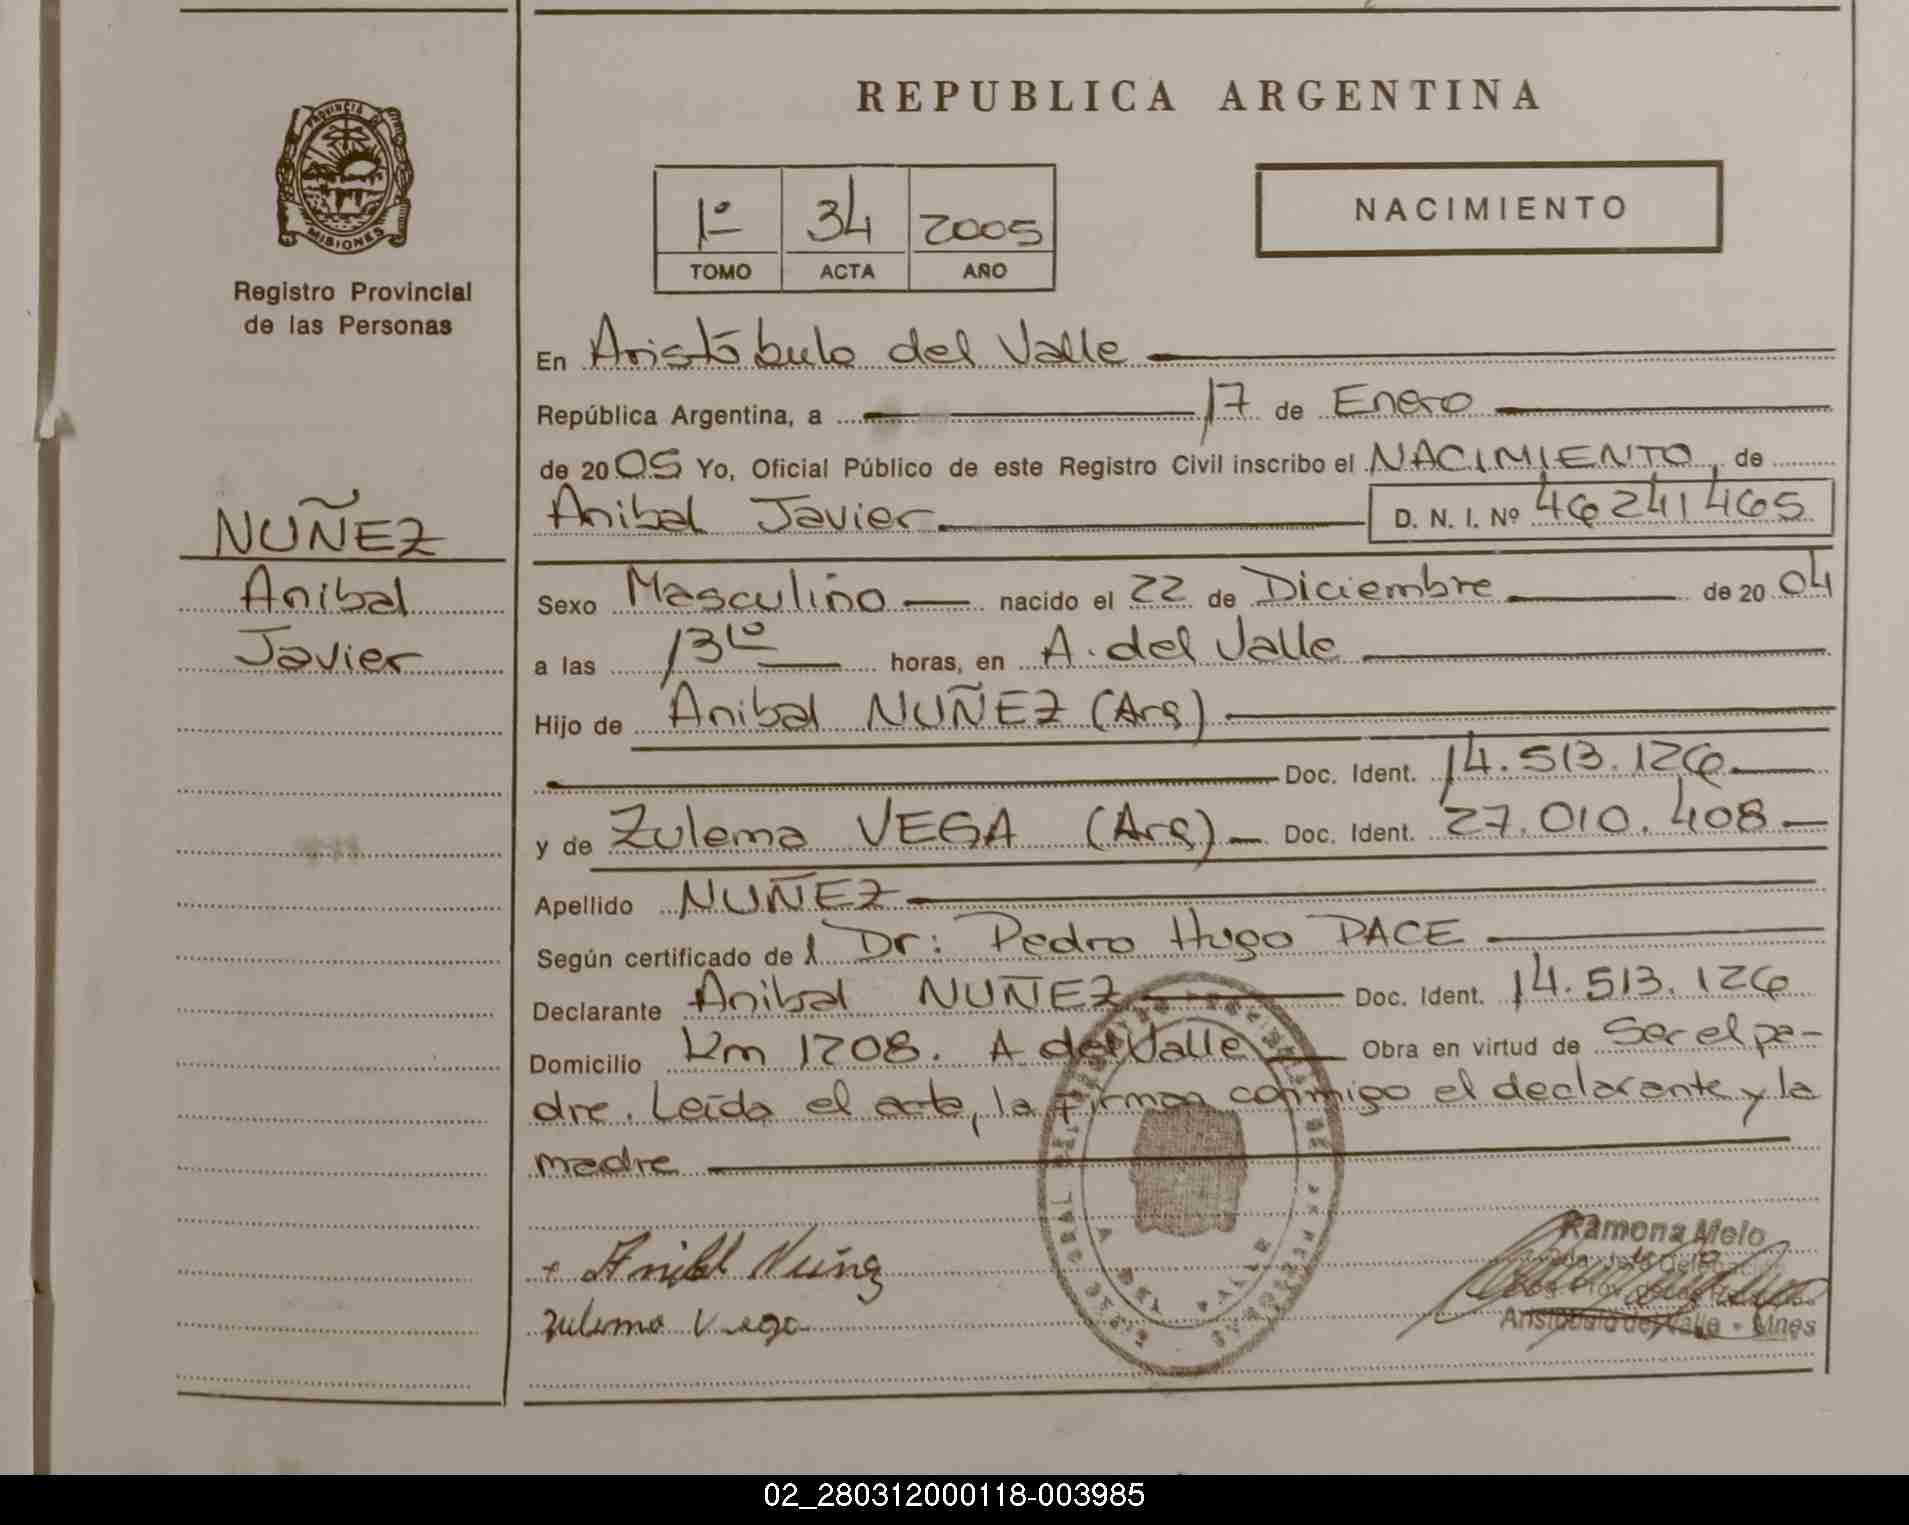 REPUBLICA ARGENTINA
PROVINCIA DE
MISIONES
Registro Provincial
de las Personas
1º 34 2005
TOMO ACTA AÑO
NACIMIENTO
NUÑEZ
Anibal
Javier
En Aristóbulo del Valle
República Argentina, a 17 de Enero
de 2005 Yo, Oficial Público de este Registro Civil inscribo el NACIMIENTO, de
Anibal Javier D. N. I. Nº 46241465
Sexo Masculino nacido el 22 de Diciembre de 2004
a las 13 horas, en A. del Valle
Hijo de Anibal NUÑEZ (Arg)
Doc. Ident. 14.513.126
y de Zulema VEGA (Arg) Doc. Ident. 27.010.408
Apellido NUÑEZ
Según certificado de l Dr: Pedro Hugo PACE
Declarante Anibal NUÑEZ Doc. Ident. 14.513.126
Domicilio Km 1208. A del Valle Obra en virtud de Ser el pa-
dre. Leída el acta, la firman conmigo el declarante y la
madre
+ Anibal Nuñez
Zulema Vega
Ramona Melo
Aristóbulo del Valle - Mnes
02_280312000118-003985